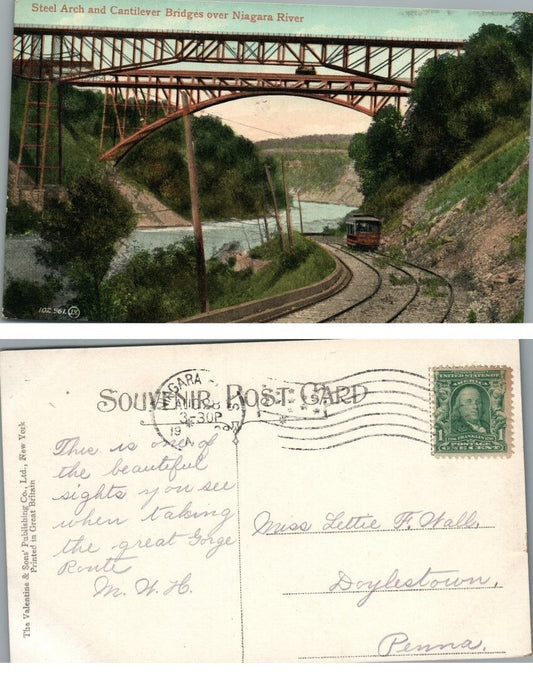 Steel Arch and Cantilever Bridges over Niagara River
102,961 JV
SOUVENIR POST CARD
NIAGARA
AUG
3-30P
19
N.Y.
UNITED STATES OF AMERICA
1
FRANKLIN
POSTAGE
ONE CENT
The Valentine & Sons' Publishing Co., Ltd., New York
Printed in Great Britain
This is one of
the beautiful
sights you see
when taking
the great Gorge
Route
M. W. H.
Miss Lettie F. Wall,
Doylestown,
Penna.